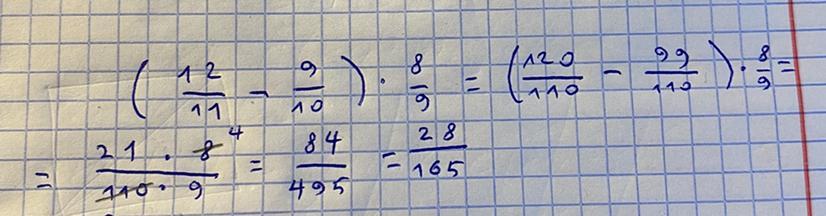 (12/11 - 9/10) · 8/9 = (120/110 - 99/110) · 8/9 =
= 21 · 8 4/110 · 9 = 84/495 = 28/165